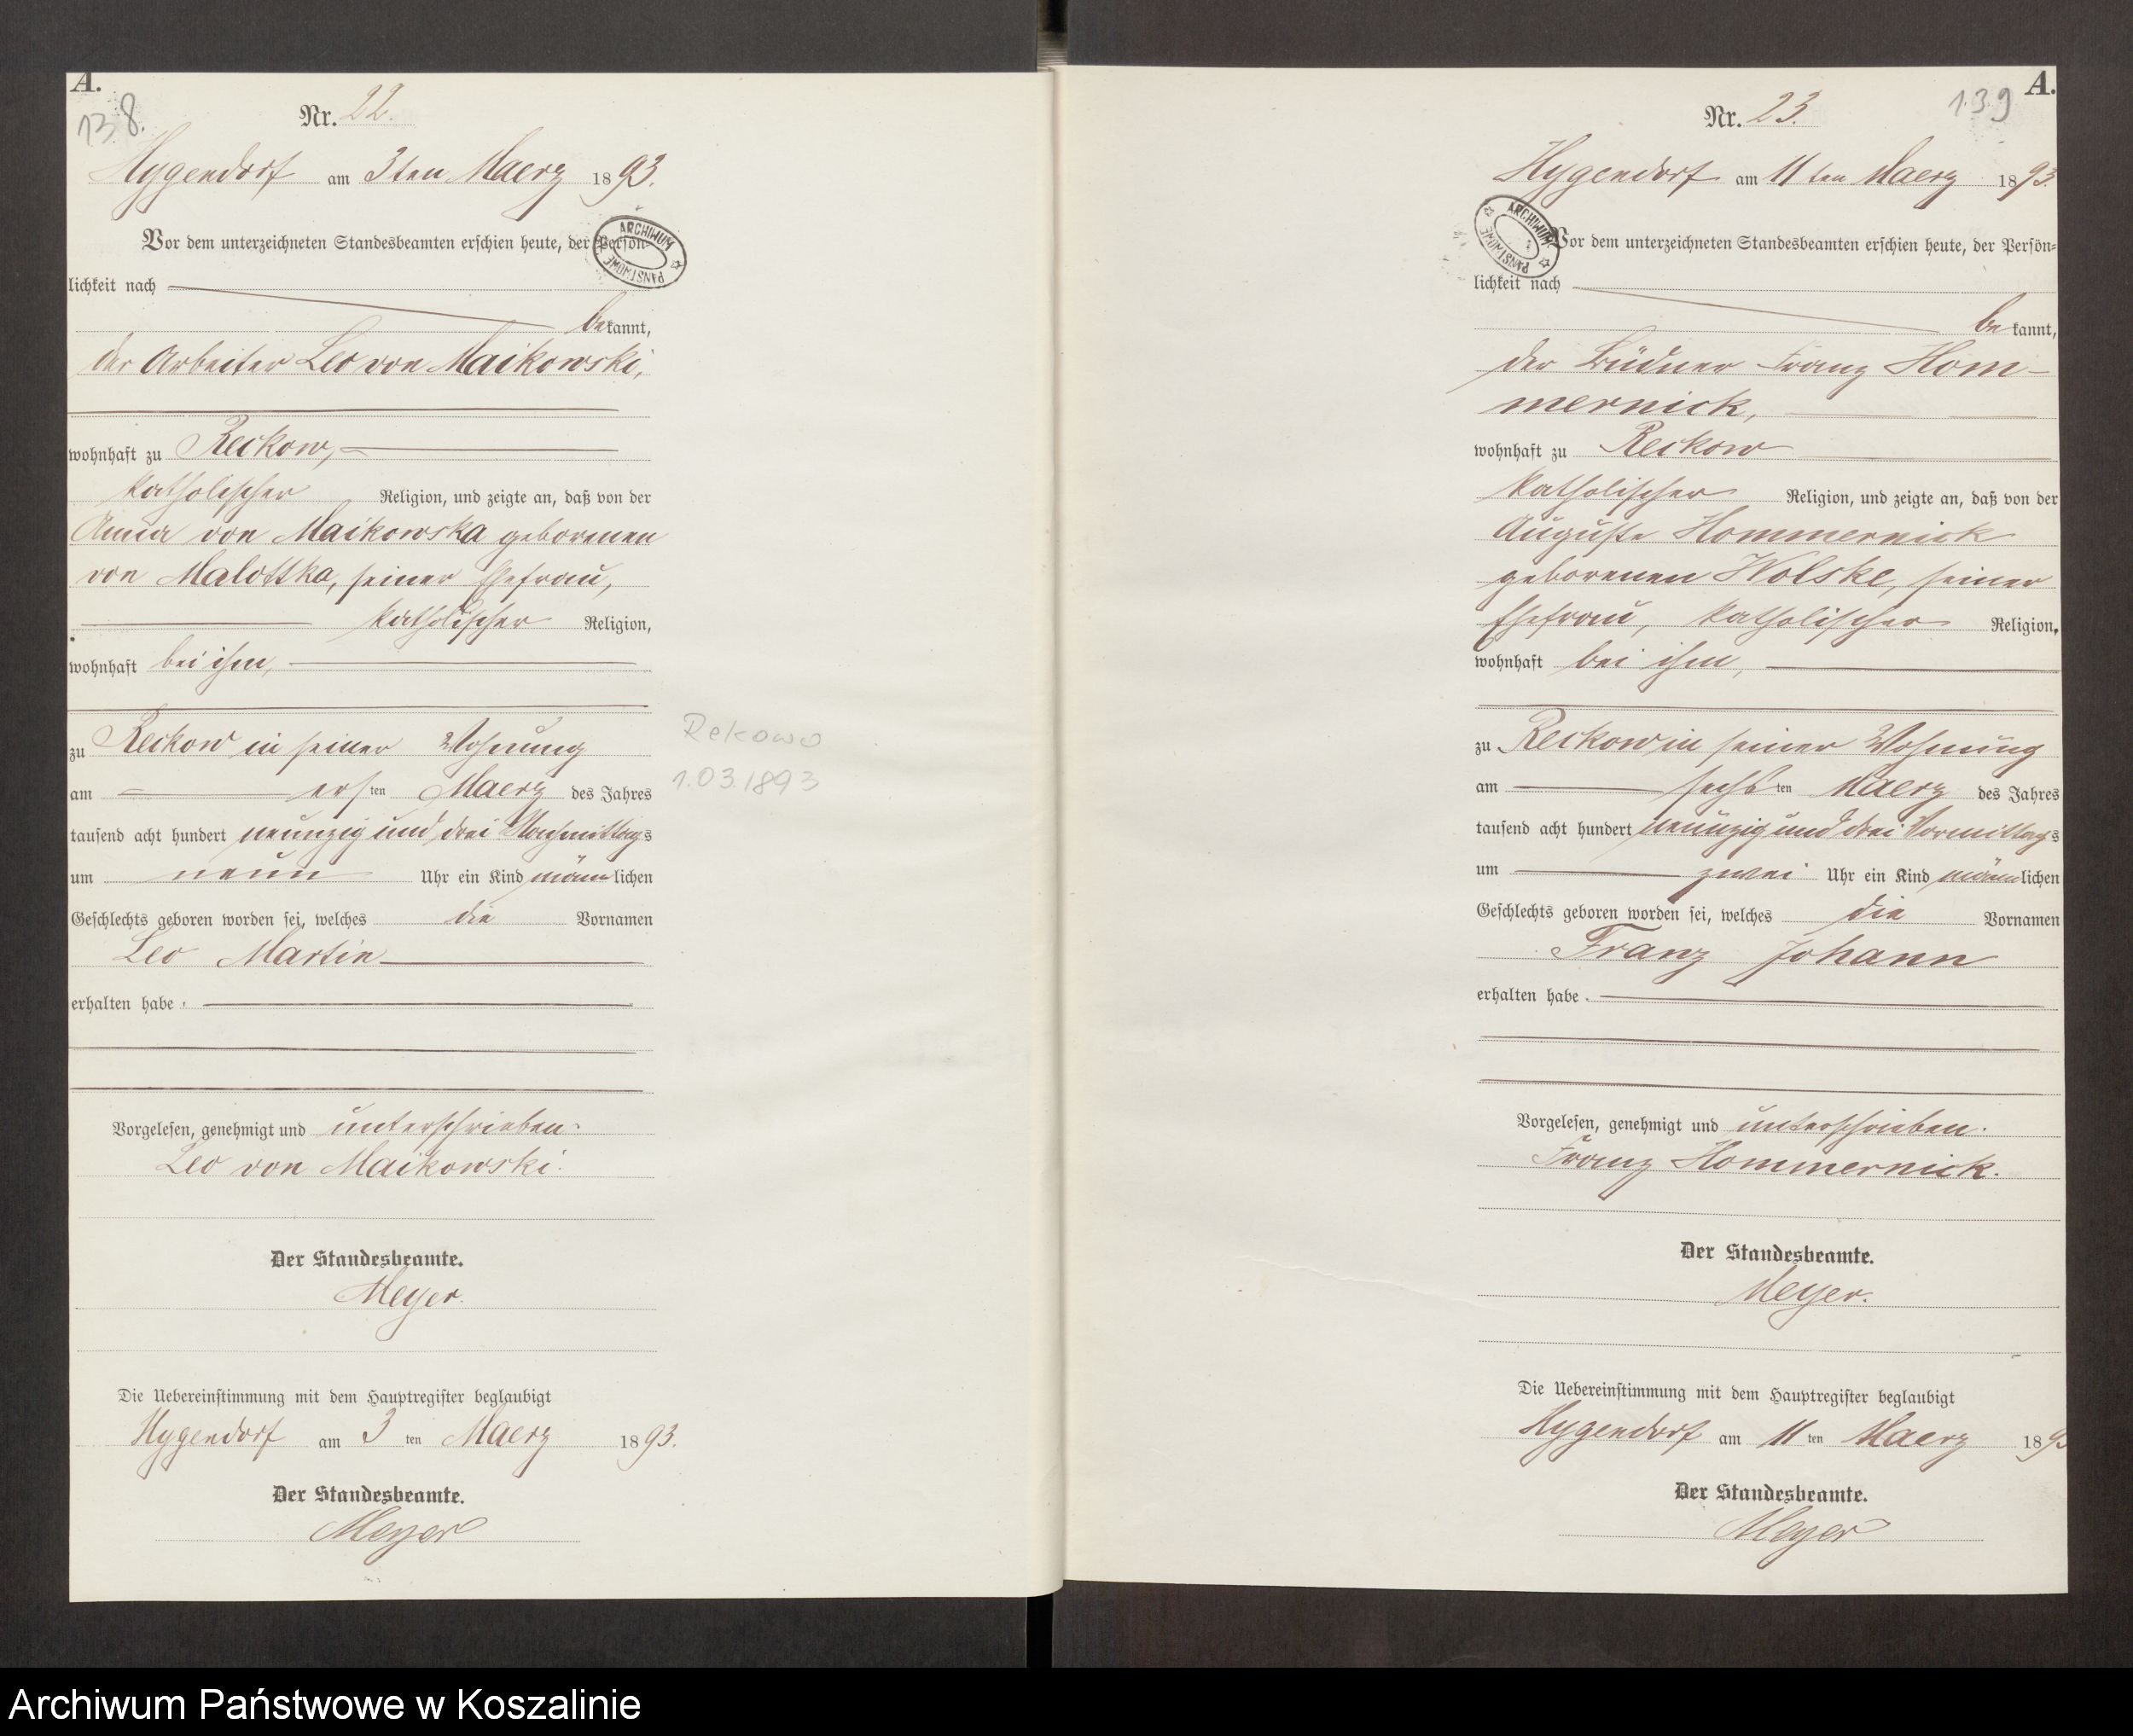 A.
138.
Nr. 22.
Hygendorf am 3ten Maerz 1893.
Vor dem unterzeichneten Standesbeamten erschien heute, der Persön-
ARCHIWUM PAŃSTWOWE
lichkeit nach
bekannt,
der Arbeiter Leo von Maikowski,
wohnhaft zu Reckow,
katholischer Religion, und zeigte an, daß von der
Anna von Maikowska geborenen
von Malottka, seiner Ehefrau,
katholischer Religion,
wohnhaft bei ihm,
zu Reckow in seiner Wohnung
am ersten Maerz des Jahres
tausend acht hundert neunzig und drei Nachmittags
um neun Uhr ein Kind männlichen
Geschlechts geboren worden sei, welches die Vornamen
Leo Martin
erhalten habe.
Vorgelesen, genehmigt und unterschrieben.
Leo von Maikowski.
Der Standesbeamte.
Meyer.
Die Uebereinstimmung mit dem Hauptregister beglaubigt
Hygendorf am 3 ten Maerz 1893.
Der Standesbeamte.
Meyer
Rekowo
1.03.1893
A.
139
Nr. 23.
Hygendorf am 11ten Maerz 1893.
ARCHIWUM PAŃSTWOWE
Vor dem unterzeichneten Standesbeamten erschien heute, der Persön-
lichkeit nach
bekannt,
der Büdner Franz Hom-
mernick,
wohnhaft zu Reckow
katholischer Religion, und zeigte an, daß von der
Auguste Hommernick
geborenen Wolske, seiner
Ehefrau, katholischer Religion,
wohnhaft bei ihm,
zu Reckow in seiner Wohnung
am sechsten Maerz des Jahres
tausend acht hundert neunzig und drei Vormittags
um zwei Uhr ein Kind männlichen
Geschlechts geboren worden sei, welches die Vornamen
Franz Johann
erhalten habe.
Vorgelesen, genehmigt und unterschrieben.
Franz Hommernick.
Der Standesbeamte.
Meyer.
Die Uebereinstimmung mit dem Hauptregister beglaubigt
Hygendorf am 11 ten Maerz 1893
Der Standesbeamte.
Meyer
Archiwum Państwowe w Koszalinie